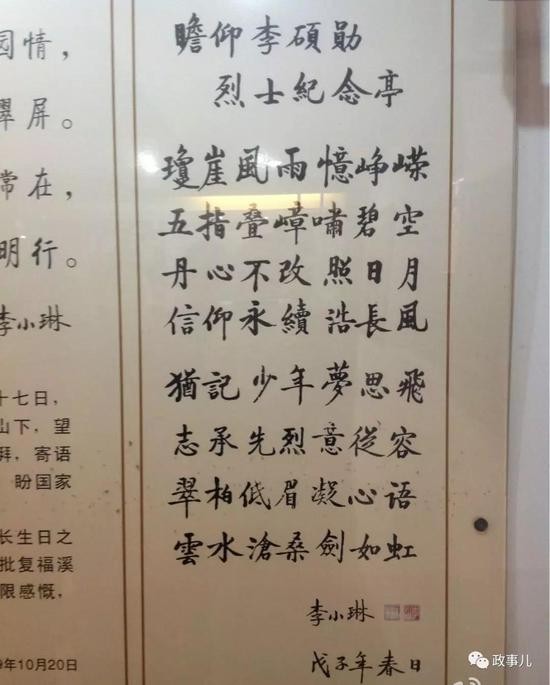 园情，
翠屏。
常在，
明行。
李小琳
十七日，
山下，望
湃，寄语
盼国家
长生日之
批复福溪
限感慨，
9年10月20日
瞻仰李碩勋
烈士紀念亭
瓊崖風雨憶峥嵘
五指叠嶂嘯碧空
丹心不改照日月
信仰永續浩長風
猶記少年夢思飛
志承先烈意從容
翠柏低眉凝心语
雲水滄桑劍如虹
李小琳
戊子年春日
政事儿